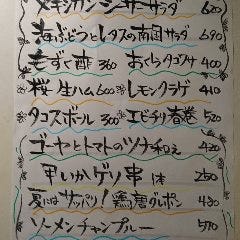 メキシカンシーザーサラダ 620
海ぶどうとレタスの南国サラダ 690
もずく酢 360 おくらタコス 400
桜生ハム 600 レモンクラゲ 410
タコスボール 300 エビチリ春巻 520
ゴーヤとトマトのツナ和え 420
甲いかゲソ串 1本 250
夏はサッパリ!鶏唐ポン 430
ソーメンチャンプルー 570